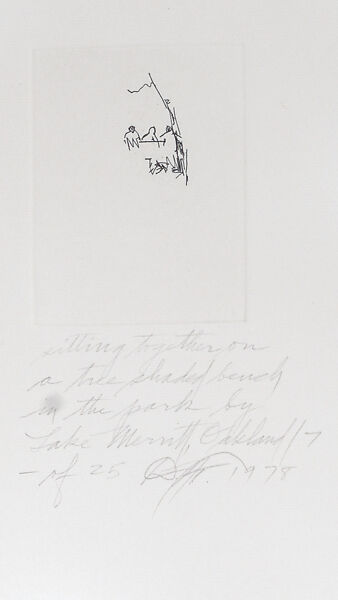 sitting together on
a tree shaded bench
in the park by
Lake Merritt, Oakland // 7
— of 25 1978